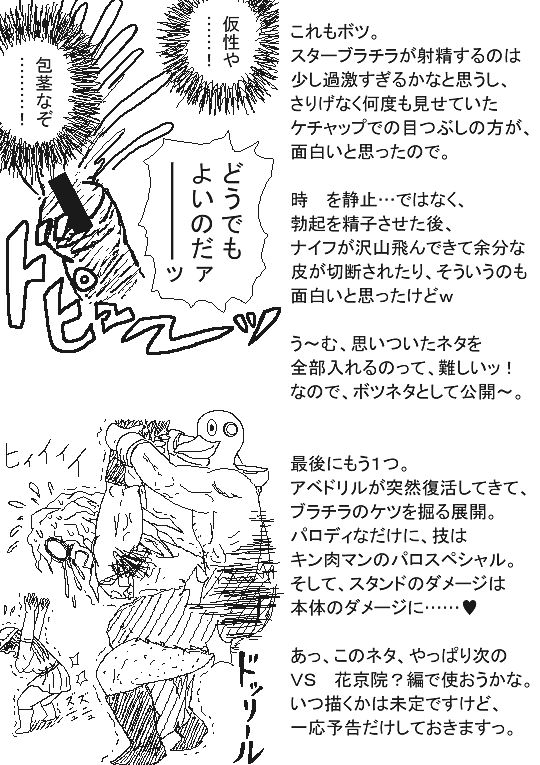 仮性や
……！
包茎なぞ
………！
どうでも
よいのだァ
───ッ
ドビューーッ
これもボツ。
スターブラチラが射精するのは
少し過激すぎるかなと思うし、
さりげなく何度も見せていた
ケチャップでの目つぶしの方が、
面白いと思ったので。
時　を静止…ではなく、
勃起を精子させた後、
ナイフが沢山飛んできて余分な
皮が切断されたり、そういうのも
面白いと思ったけどｗ
う～む、思いついたネタを
全部入れるのって、難しいッ！
なので、ボツネタとして公開～。
ヒィイィイ
ズズズ
ドッリール
最後にもう１つ。
アベドリルが突然復活してきて、
ブラチラのケツを掘る展開。
パロディなだけに、技は
キン肉マンのパロスペシャル。
そして、スタンドのダメージは
本体のダメージに……♥
あっ、このネタ、やっぱり次の
ＶＳ　花京院？編で使おうかな。
いつ描くかは未定ですけど、
一応予告だけしておきますっ。